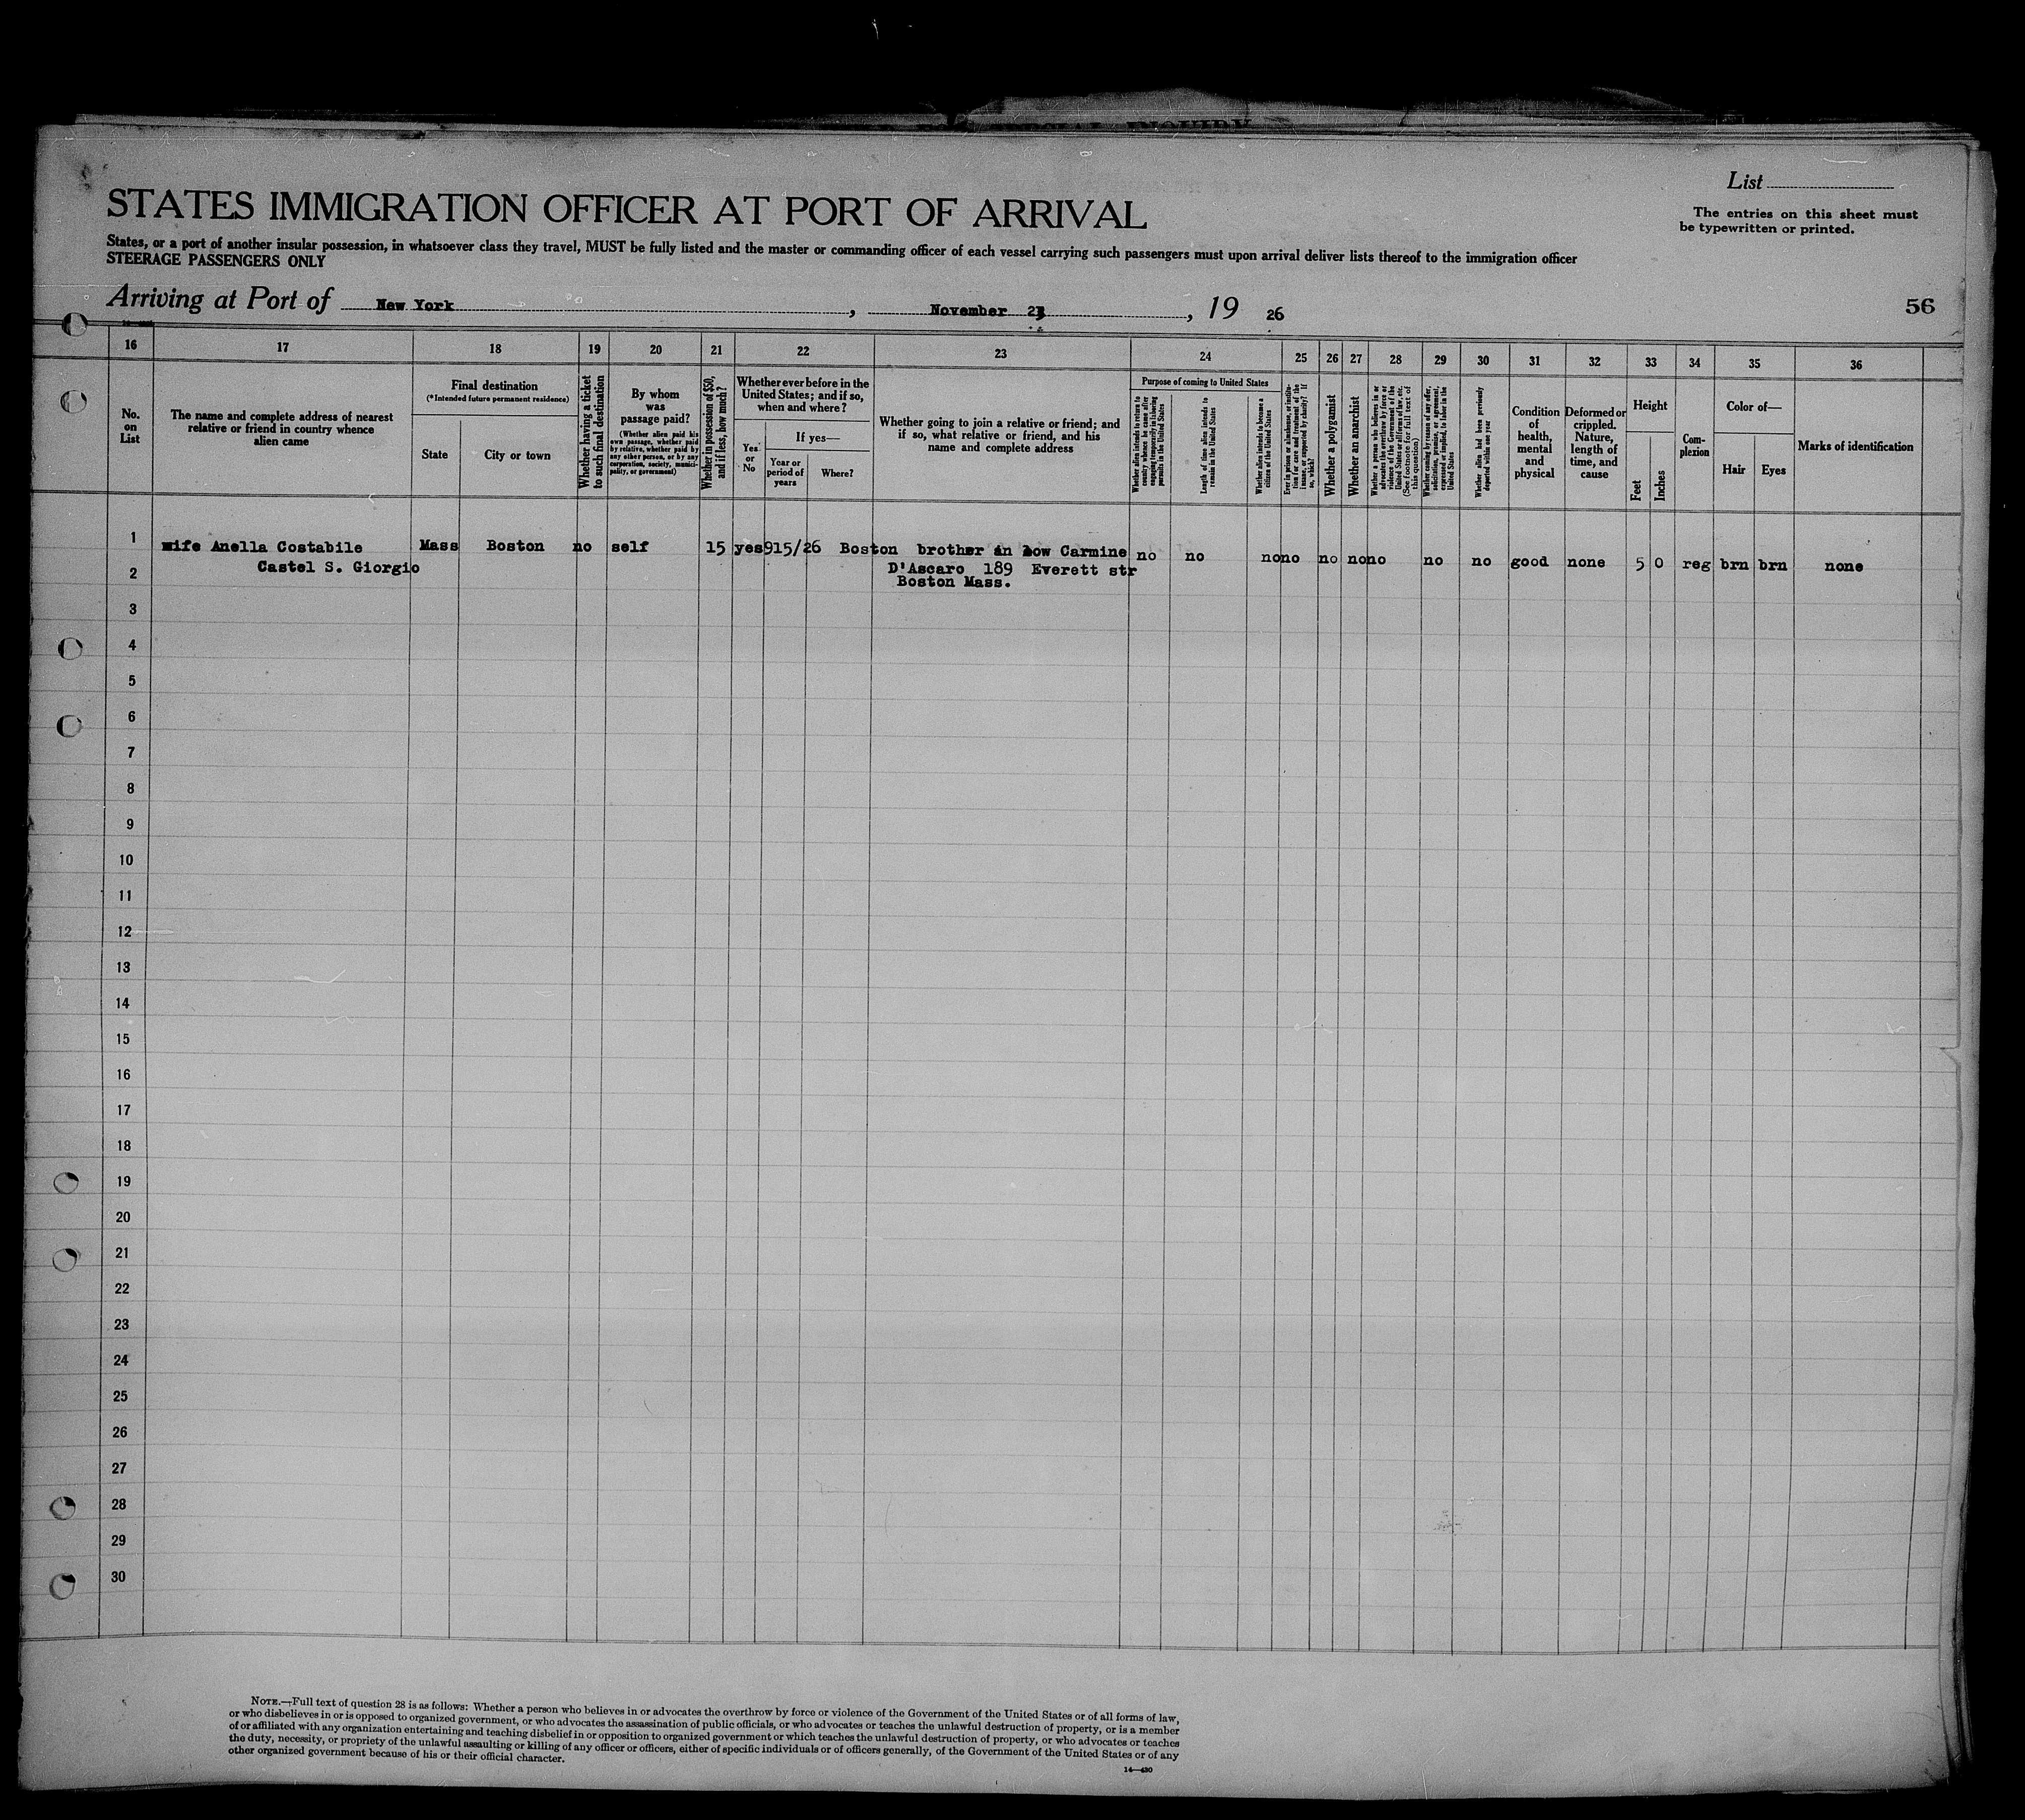 List
STATES IMMIGRATION OFFICER AT PORT OF ARRIVAL
The entries on this sheet must
be typewritten or printed.
States, or a port of another insular possession, in whatsoever class they travel, MUST be fully listed and the master or commanding officer of each vessel carrying such passengers must upon arrival deliver lists thereof to the immigration officer
STEERAGE PASSENGERS ONLY
Arriving at Port of New York, November, 19 26
56
16 17 18 19 20 21 22 23 24 25 26 27 28 29 30 31 32 33 34 35 36
No.
on
List
The name and complete address of nearest
relative or friend in country whence
alien came
Final destination
(*Intended future permanent residence)
State
City or town
Whether having a ticket
to such final destination
By whom
was
passage paid?
(Whether alien paid his
own passage, whether paid
by relative, whether paid by
any other person, or by any
corporation, society, munici-
pality, or government)
Whether in possession of $50,
and if less, how much?
Whether ever before in the
United States; and if so,
when and where?
Yes
or
No
If yes—
Year or
period of
years
Where?
Whether going to join a relative or friend; and
if so, what relative or friend, and his
name and complete address
Purpose of coming to United States
Whether alien intends to return to
country whence he came after
engaging temporarily in laboring
pursuits in the United States
Length of time alien intends to
remain in the United States
Whether alien intends to become a
citizen of the United States
Ever in prison or almshouse, or institu-
tion for care and treatment of the
insane, or supported by charity? If
so, which?
Whether a polygamist
Whether an anarchist
Whether a person who believes in or
advocates the overthrow by force or
violence of the Government of the
United States or all forms of law, etc.
(See footnote for full text of
this question)
Whether coming by reason of any offer,
solicitation, promise, or agreement,
expressed or implied, to labor in the
United States
Whether alien had been previously
deported within one year
Condition
of
health,
mental
and
physical
Deformed or
crippled.
Nature,
length of
time, and
cause
Height
Feet
Inches
Com-
plexion
Color of—
Hair
Eyes
Marks of identification
1 wife Anella Costabile Mass Boston no self 15 yes 915/26 Boston brother in low Carmine no no no no no no no no no good none 5 0 reg brn brn none
2 Castel S. Giorgio D'Ascaro 189 Everett str
Boston Mass.
3
4
5
6
7
8
9
10
11
12
13
14
15
16
17
18
19
20
21
22
23
24
25
26
27
28
29
30
NOTE.—Full text of question 28 is as follows: Whether a person who believes in or advocates the overthrow by force or violence of the Government of the United States or of all forms of law,
or who disbelieves in or is opposed to organized government, or who advocates the assassination of public officials, or who advocates or teaches the unlawful destruction of property, or is a member
of or affiliated with any organization entertaining and teaching disbelief in or opposition to organized government or which teaches the unlawful destruction of property, or who advocates or teaches
the duty, necessity, or propriety of the unlawful assaulting or killing of any officer or officers, either of specific individuals or of officers generally, of the Government of the United States or of any
other organized government because of his or their official character.
14—430